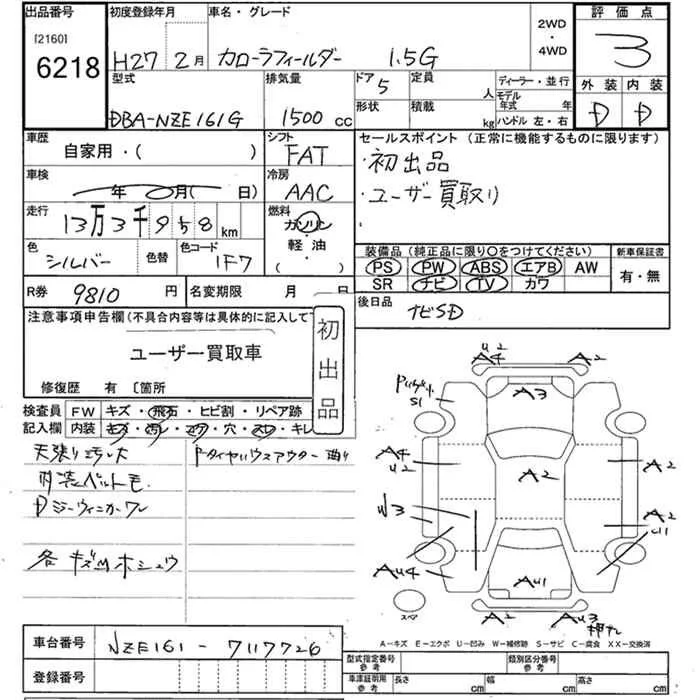 出品番号
[2160]
6218
初度登録年月
H27 2月
車名・グレード
カローラフィールダー 1.5G
2WD
・
4WD
評価点
3
外装 内装
D D
型式
DBA-NZE161G
排気量
1500 cc
ドア 5
形状
定員 人
積載 kg
ディーラー・並行
モデル年式 年
ハンドル 左・右
車歴
自家用・( )
シフト
FAT
車検
年 月( 日)
冷房
AAC
走行
13万3千958 km
燃料
ガソリン
軽油
( )
色
シルバー
色替
色コード
1F7
セールスポイント (正常に機能するものに限ります)
・初出品
・ユーザー買取り
装備品 (純正品に限り○をつけてください)
PS PW ABS エアB AW
SR ナビ TV カワ
新車保証書
有・無
R券 9810 円
名変期限 月 日
後日品
ナビSD
注意事項申告欄(不具合内容等は具体的に記入して下
ユーザー買取車
修復歴 有 〔箇所
初出品
検査員記入欄
FW キズ・飛石・ヒビ割・リペア跡
内装 キズ・汚レ・コゲ・穴・スレ・キレ
内装ペットモ
各キズUホシュウ
U2
A4
A2
S1
A3
A4
U2
A2
A2
W3
A2
U1
AU4
AU1
A2
AU3
押サレ
スペア
A-キズ E-エクボ U-凹み W-補修跡 S-サビ C-腐食 XX-交換済
車台番号 NZE161-7117726
登録番号
型式指定番号 参考
類別区分番号 参考
車庫証明用 参考 長さ cm 幅 cm 高さ cm